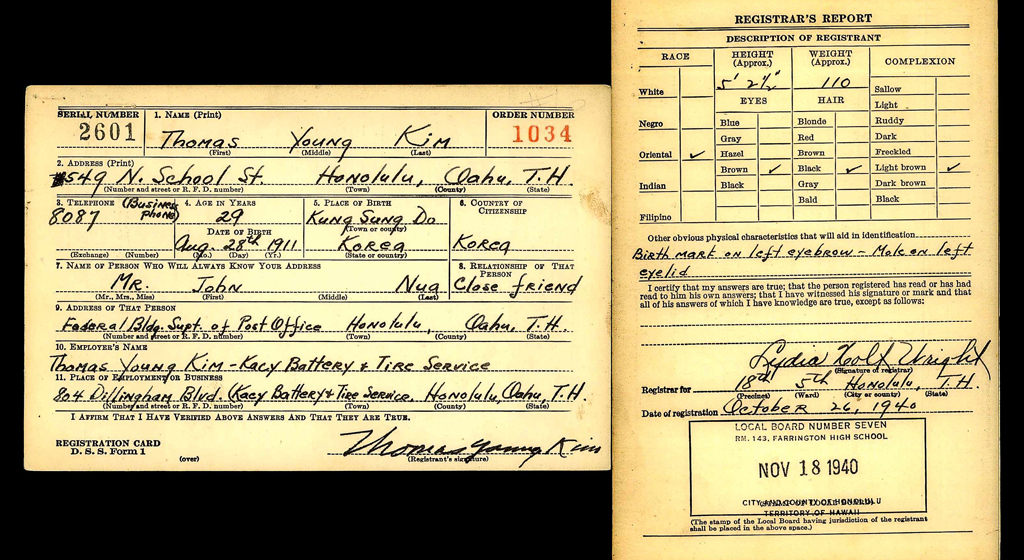 SERIAL NUMBER
2601
1. NAME (Print)
Thomas Young Kim
(First) (Middle) (Last)
ORDER NUMBER
1034
2. ADDRESS (Print)
549 N. School St. Honolulu, Oahu, T.H.
(Number and street or R. F. D. number) (Town) (County) (State)
3. TELEPHONE (Business phone)
8087
(Exchange) (Number)
4. AGE IN YEARS
29
DATE OF BIRTH
Aug. 28th 1911
(Mo.) (Day) (Yr.)
5. PLACE OF BIRTH
Kung Sung Do
(Town or county)
Korea
(State or country)
6. COUNTRY OF
CITIZENSHIP
Korea
7. NAME OF PERSON WHO WILL ALWAYS KNOW YOUR ADDRESS
Mr. John Nua
(Mr., Mrs., Miss) (First) (Middle) (Last)
8. RELATIONSHIP OF THAT
PERSON
Close friend
9. ADDRESS OF THAT PERSON
Federal Bldg. Supt. of Post Office Honolulu, Oahu, T.H.
(Number and street or R. F. D. number) (Town) (County) (State)
10. EMPLOYER'S NAME
Thomas Young Kim - Kacy Battery & Tire Service
11. PLACE OF EMPLOYMENT OR BUSINESS
804 Dillingham Blvd. (Kacy Battery & Tire Service. Honolulu, Oahu, T.H.
(Number and street or R. F. D. number) (Town) (County) (State)
I AFFIRM THAT I HAVE VERIFIED ABOVE ANSWERS AND THAT THEY ARE TRUE.
REGISTRATION CARD
D. S. S. Form 1
(over)
Thomas Young Kim
(Registrant's signature)
REGISTRAR'S REPORT
DESCRIPTION OF REGISTRANT
RACE
White
Negro
Oriental ✓
Indian
Filipino
HEIGHT
(Approx.)
5' 2½"
WEIGHT
(Approx.)
110
EYES
Blue
Gray
Hazel
Brown ✓
Black
HAIR
Blonde
Red
Brown
Black ✓
Gray
Bald
COMPLEXION
Sallow
Light
Ruddy
Dark
Freckled
Light brown ✓
Dark brown
Black
Other obvious physical characteristics that will aid in identification
Birth mark on left eyebrow - Mole on left
eyelid
I certify that my answers are true; that the person registered has read or has had
read to him his own answers; that I have witnessed his signature or mark and that
all of his answers of which I have knowledge are true, except as follows:
Lydia Holt Wright
(Signature of registrar)
Registrar for 18th 5th Honolulu, T.H.
(Precinct) (Ward) (City or county) (State)
Date of registration October 26, 1940
LOCAL BOARD NUMBER SEVEN
RM. 143, FARRINGTON HIGH SCHOOL
NOV 18 1940
CITY AND COUNTY OF HONOLULU
TERRITORY OF HAWAII
(The stamp of the Local Board having jurisdiction of the registrant
shall be placed in the above space.)